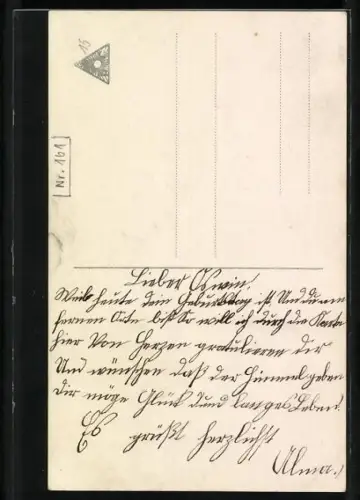 15
Nr. 161
Lieber Oswin!
Weil heute dein Geburtstag ist Und du am
fernen Orte bist So will ich durch die Karte
hier Von Herzen gratulieren dir
Und wünschen daß der Himmel geben
Dir möge Glück und langes Leben.
Es grüßt herzlichst
Alma.